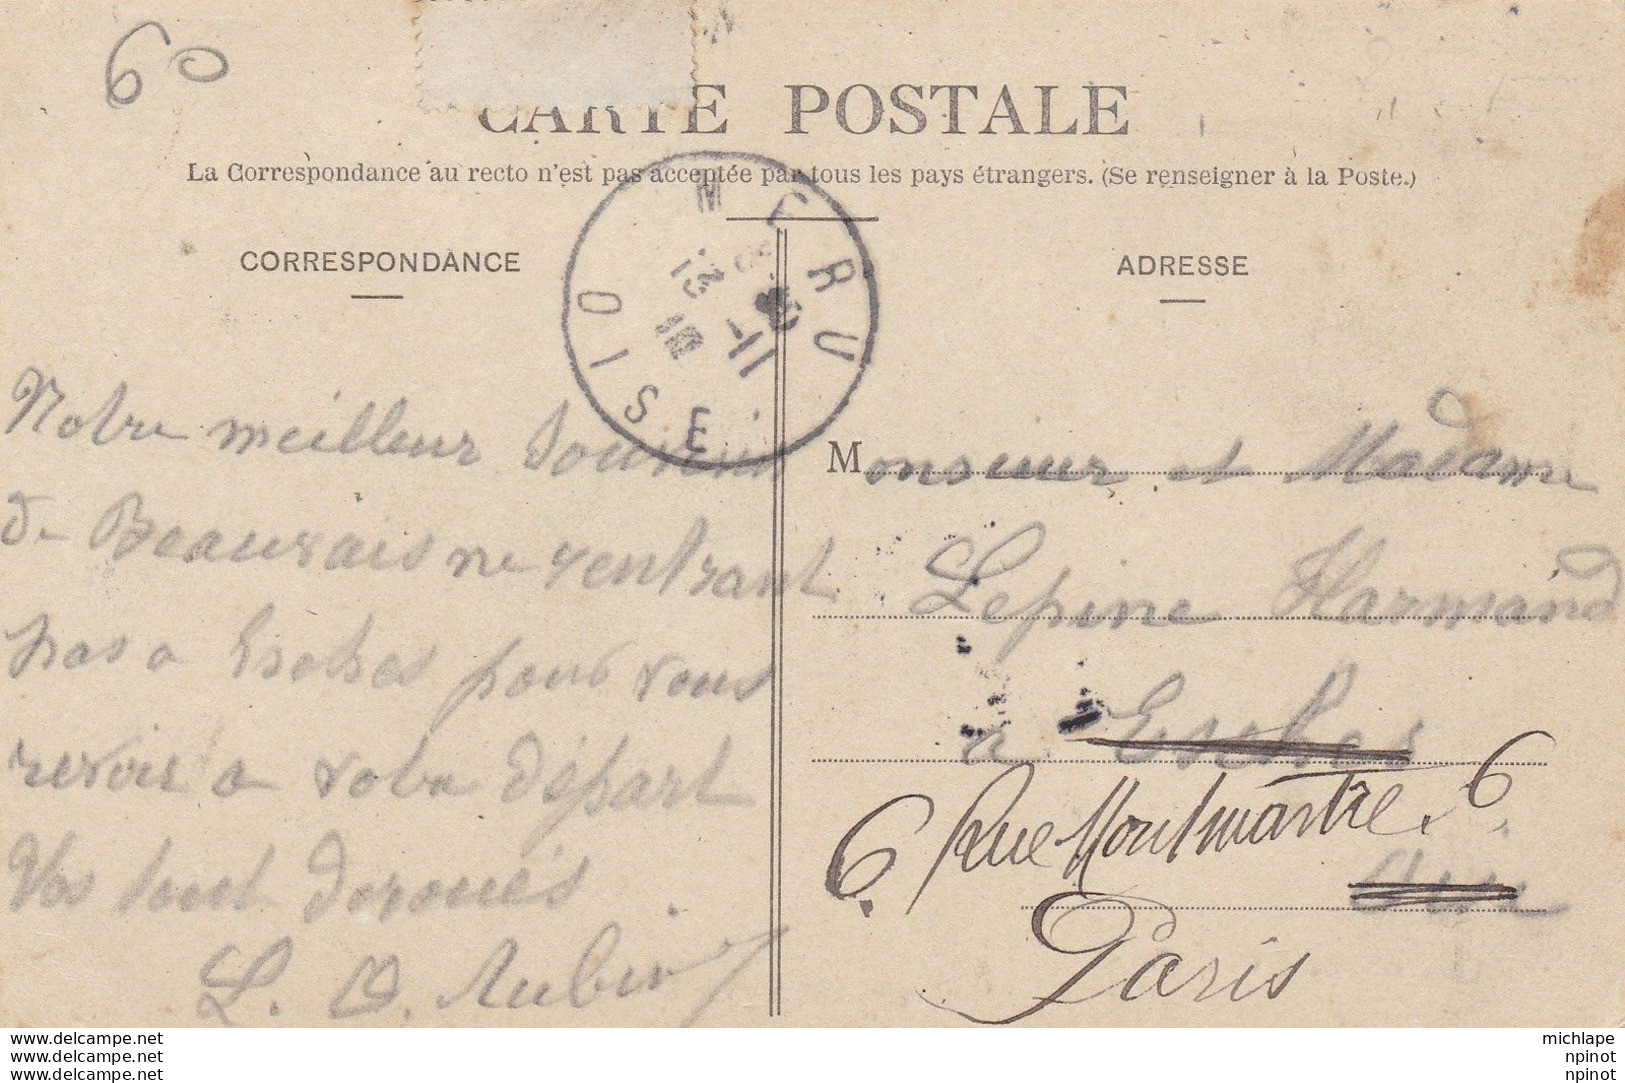 60
CARTE POSTALE
La Correspondance au recto n'est pas acceptée par tous les pays étrangers. (Se renseigner à la Poste.)
CORRESPONDANCE
ADRESSE
MERU
OISE
Notre meilleur Souvenir
de Beauvais ne rentrant
pas a Esches pour vous
revoir a votre départ
Vos tout dévoués
L. D. Aubin
Monsieur et Madame
Lepine Harmand
a Esches
6 Rue Montmartre 6
Oise
Paris
www.delcampe.net
www.delcampe.net
www.delcampe.net
michlape
npinot
npinot